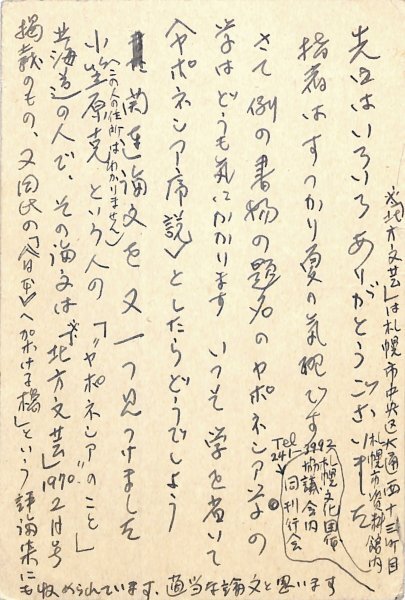 先日はいろいろありがとうございました
指宿はすっかり夏の気配です
さて例の書物の題名のヤポネシア学の
学はどうも気にかかります いっそ学を省いて
〈ヤポネシア序説〉としたらどうでしょう
関連論文を又一つ見つけました
小笠原克という人の「"ヤポネシア"のこと」
(この人の住所はわかりません)
北海道の人で、その論文は"北方文芸"1970 2月号
掲載のもの、又同氏の「〈日本〉へ架ける橋」という評論集にも
収められています、適当な論文と思います
"北方文芸"は札幌市中央区大通西十三丁目
札幌市資料館内
札幌文化団体
協議会内
同刊行会
Tel
241-3992